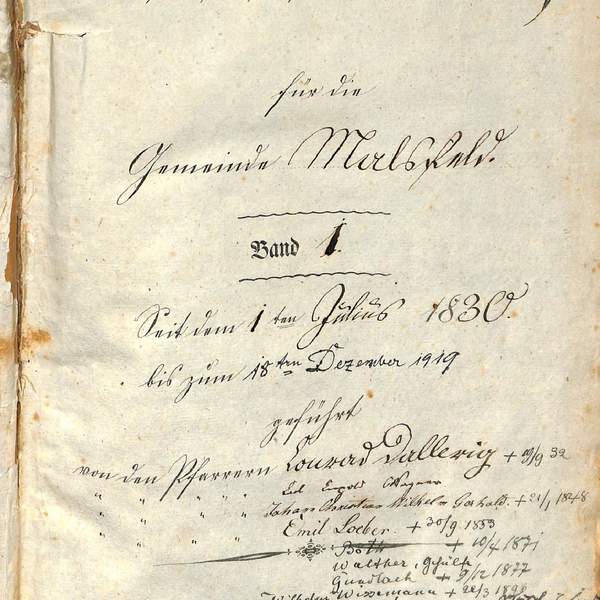 für die
Gemeinde Malsfeld.
Band 1.
Seit dem 1 ten Julius 1830.
bis zum 18ten Dezember 1919
geführt
von den Pfarrern Conrad Dallerig + 19/9 32
" " " " Wagner
" " " " Johann Christian Wilhelm Gerhold. + 21/1 1848
" " Emil Loeber. + 30/9. 1853
Both + 10/4 1871
Walther, Gehülfe
Gundlach + 9/12 1877
Wilhelm Wissemann + 22/3